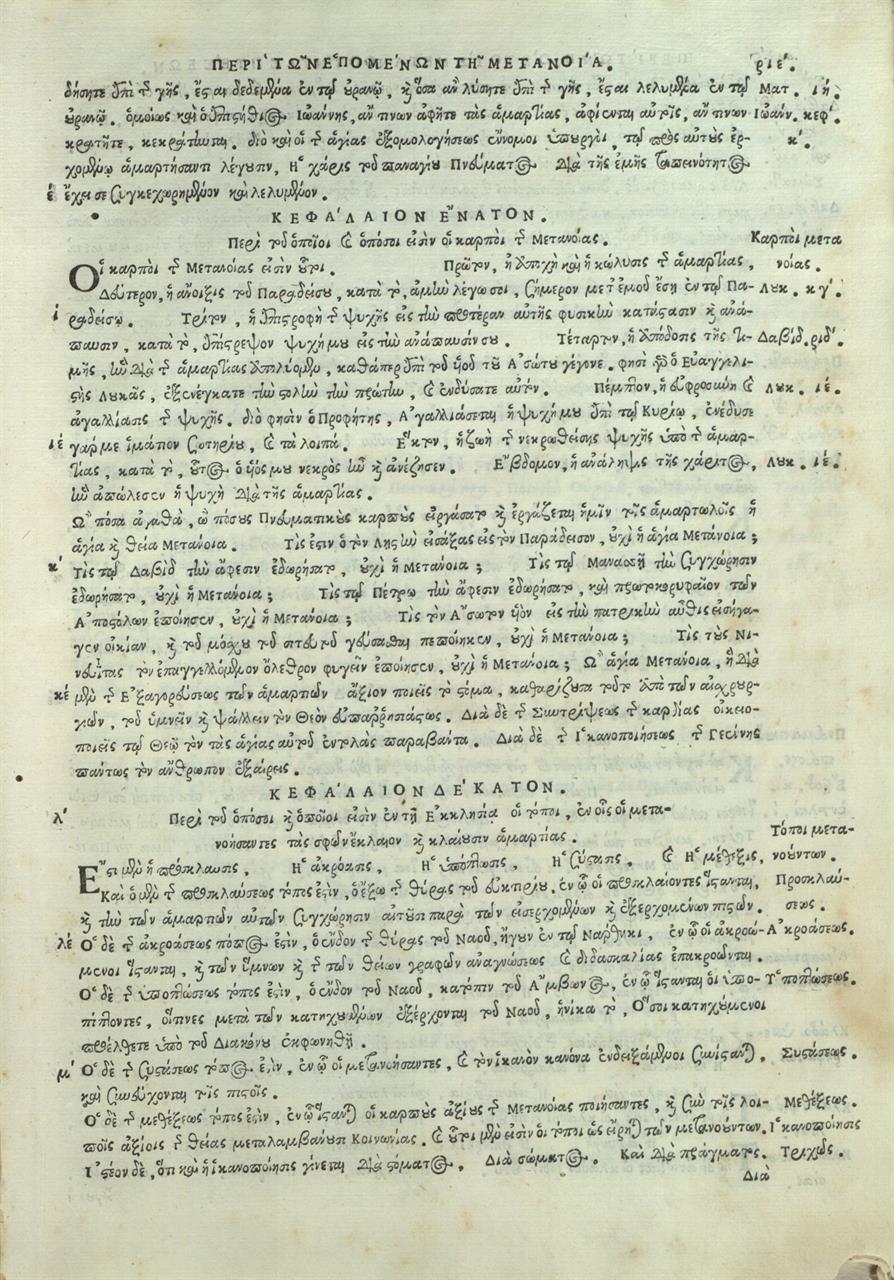 ΠΕΡΙ ΤΩΝ ΕΠΟΜΕΝΩΝ ΤΗ ΜΕΤΑΝΟΙΑ. ριε΄.
δήσητε ἐπὶ τῆς γῆς, ἔσται δεδεμένα ἐν τῷ οὐρανῷ, καὶ ὅσα ἂν λύσητε ἐπὶ τῆς γῆς, ἔσται λελυμένα ἐν τῷ Ματ. ιή.
οὐρανῷ. ὁμοίως καὶ ὁ ἐπιστήθιος Ἰωάννης, ἄν τινων ἀφῆτε τὰς ἁμαρτίας, ἀφίενται αὐτοῖς, ἄν τινων Ἰωάνν. κεφ΄.
κρατῆτε, κεκράτηνται. διὸ καὶ οἱ τῆς ἁγίας ἐξομολογήσεως ἔννομοι ὑπουργοὶ, τῷ πρὸς αὐτοὺς ἐρ- κ΄.
χομένῳ ἁμαρτήσαντι λέγουσιν, Ἡ χάρις τοῦ παναγίου Πνεύματος διὰ τῆς ἐμῆς ταπεινότητος
έ ἔχει σε συγκεχωρημένον καὶ λελυμένον.
ΚΕΦΑΛΑΙΟΝ ΕΝΑΤΟΝ.
Περὶ τοῦ ὁποῖοι καὶ ὁπόσοι εἰσὶν οἱ καρποὶ τῆς Μετανοίας. Καρποὶ μετα
Οἱ καρποὶ τῆς Μετανοίας εἰσὶν οὗτοι. Πρῶτον, ἡ ἀποχὴ καὶ ἡ κώλυσις τῆς ἁμαρτίας, νοίας.
Δεύτερον, ἡ ἄνοιξις τοῦ Παραδείσου, κατὰ τὸ, ἀμὴν λέγω σοι, σήμερον μετ᾽ ἐμοῦ ἔσῃ ἐν τῷ Πα- Λουκ. κγ΄.
ί ραδείσῳ. Τρίτον, ἡ ἐπιστροφὴ τῆς ψυχῆς εἰς τὴν προτέραν αὐτῆς φυσικὴν κατάστασιν καὶ ἀνά-
παυσιν, κατὰ τὸ, ἐπίστρεψον ψυχή μου εἰς τὴν ἀνάπαυσίν σου. Τέταρτον, ἡ ἀπόδοσις τῆς τι- Δαβίδ. ριδ΄.
μῆς, ἣν διὰ τῆς ἁμαρτίας ἀπηλύομεν, καθάπερ ἐπὶ τοῦ υἱοῦ τοῦ Ἀσώτου γέγονε. φησὶ γὰρ ὁ Εὐαγγελι-
στὴς Λουκᾶς, ἐξενέγκατε τὴν στολὴν τὴν πρώτην, καὶ ἐνδύσατε αὐτόν. Πέμπτον, ἡ εὐφροσύνη καὶ Λουκ. ιέ.
ἀγαλλίασις τῆς ψυχῆς. διό φησιν ὁ Προφήτης, Ἀγαλλιάσεται ἡ ψυχή μου ἐπὶ τῷ Κυρίῳ, ἐνέδυσε
ιέ γάρ με ἱμάτιον σωτηρίου, καὶ τὰ λοιπά. Ἕκτον, ἡ ζωὴ τῆς νεκρωθείσης ψυχῆς ὑπὸ τῆς ἁμαρ-
τίας, κατὰ τὸ, οὗτος ὁ υἱός μου νεκρὸς ἦν καὶ ἀνέζησεν. Ἕβδομον, ἡ ἀνάληψις τῆς χάριτος, Λουκ. ιέ.
ἣν ἀπώλεσεν ἡ ψυχὴ διὰ τῆς ἁμαρτίας.
Ὢ πόσα ἀγαθὰ, ὢ πόσους Πνευματικοὺς καρποὺς εἰργάσατο καὶ ἐργάζεται ἡμῖν τοῖς ἁμαρτωλοῖς ἡ
ἁγία καὶ θεία Μετάνοια. Τίς ἐστιν ὁ τὸν Λῃστὴν εἰσάξας εἰς τὸν Παράδεισον, οὐχὶ ἡ ἁγία Μετάνοια;
κ΄ Τίς τῷ Δαβὶδ τὴν ἄφεσιν ἐδωρήσατο, οὐχὶ ἡ Μετάνοια; Τίς τῷ Μανασσῇ τὴν συγχώρησιν
ἐδωρήσατο, οὐχὶ ἡ Μετάνοια; Τίς τῷ Πέτρῳ τὴν ἄφεσιν ἐδωρήσατο, καὶ πρωτοκορυφαῖον τῶν
Ἀποστόλων ἐποίησεν, οὐχὶ ἡ Μετάνοια; Τίς τὸν Ἄσωτον υἱὸν εἰς τὴν πατρικὴν αὖθις εἰσήγα-
γεν οἰκίαν, καὶ τοῦ μόσχου τοῦ σιτευτοῦ γεύσασθαι πεποίηκεν, οὐχὶ ἡ Μετάνοια; Τίς τοὺς Νι-
νευΐτας τὸν ἐπαγγελλόμενον ὄλεθρον φυγεῖν ἐποίησεν, οὐχὶ ἡ Μετάνοια; Ὢ ἁγία Μετάνοια, ἡ διὰ
κέ μὲν τῆς Ἐξαγορεύσεως τῶν ἁμαρτιῶν ἄξιον ποιεῖς τὸ στόμα, καθαρίζουσα τοῦτο ἀπὸ τῶν αἰσχρουρ-
γιῶν, τοῦ ὑμνεῖν καὶ ψάλλειν τὸν Θεὸν εὐπαρρησιάστως. Διὰ δὲ τῆς Συντρίψεως τῆς καρδίας οἰκειο-
ποιεῖς τῷ Θεῷ τὸν τὰς ἁγίας αὐτοῦ ἐντολὰς παραβάντα. Διὰ δὲ τῆς Ἱκανοποιήσεως τῆς Γεέννης
παντως τὸν ἄνθρωπον ἐξαίρεις.
ΚΕΦΑΛΑΙΟΝ ΔΕΚΑΤΟΝ.
λ΄ Περὶ τοῦ ὁπόσοι καὶ ὁποῖοι εἰσὶν ἐν τῇ Ἐκκλησίᾳ οἱ τόποι, ἐν οἷς οἱ μετα-
νοήσαντες τὰς σφῶν ἔκλαιον καὶ κλαίουσιν ἁμαρτίας. Τόποι μετα-
Ἔστι μὲν ἡ πρόσκλαυσις, Ἡ ἀκρόασις, Ἡ ὑπόπτωσις, Ἡ σύστασις, καὶ Ἡ μέθεξις, νοούντων.
Καὶ ὁ μὲν τῆς προσκλαύσεως τόπος ἐστὶν, ὁ ἔξω τῆς θύρας τοῦ εὐκτηρίου, ἐν ᾧ οἱ προσκλαίοντες ἵστανται, Προσκλαύ-
καὶ τὴν τῶν ἁμαρτιῶν αὐτῶν συγχώρησιν αἰτοῦσι παρὰ τῶν εἰσερχομένων καὶ ἐξερχομένων πιστῶν. σεως.
λέ Ὁ δὲ τῆς ἀκροάσεως τόπος ἐστὶν, ὁ ἔνδον τῆς θύρας τοῦ Ναοῦ, ἤγουν ἐν τῷ Νάρθηκι, ἐν ᾧ οἱ ἀκροώ- Ἀκροάσεως.
μενοι ἵστανται, καὶ τῶν ὕμνων καὶ τῆς τῶν θείων γραφῶν ἀναγνώσεως καὶ διδασκαλίας ἐπακροῶνται.
Ὁ δὲ τῆς ὑποπτώσεως τόπος ἐστὶν, ὁ ἔνδον τοῦ Ναοῦ, κατόπιν τοῦ Ἄμβωνος, ἐν ᾧ ἵστανται οἱ ὑπο- Ὑποπτώσεως.
πίπτοντες, οἵτινες μετὰ τῶν κατηχουμένων ἐξέρχονται τοῦ Ναοῦ, ἡνίκα τὸ, Ὅσοι κατηχούμενοι
προέλθετε ὑπὸ τοῦ Διακόνου ἐκφωνηθῇ.
μ΄ Ὁ δὲ τῆς συστάσεως τόπος ἐστὶν, ἐν ᾧ οἱ μετανοήσαντες, καὶ τὸν ἱκανὸν κανόνα ἐνδειξάμενοι συνίστανται, Συστάσεως.
καὶ συνεύχονται τοῖς πιστοῖς.
Ὁ δὲ τῆς μεθέξεως τόπος ἐστὶν, ἐν ᾧ ἵστανται οἱ καρποὺς ἀξίους τῆς Μετανοίας ποιήσαντες, καὶ σὺν τοῖς λοι- Μεθέξεως.
ποῖς ἀξίοις τῆς θείας μεταλαμβάνουσι Κοινωνίας. καὶ οὗτοι μὲν εἰσὶν οἱ τόποι ὡς εἴρηται τῶν μετανοούντων. Ἱκανοποίησις
Ἰστέον δὲ, ὅτι καὶ ἡ ἱκανοποίησις γίνεται διὰ στόματος, Διὰ σώματος, Καὶ διὰ πράγματος. Τριχῶς.
Διὰ